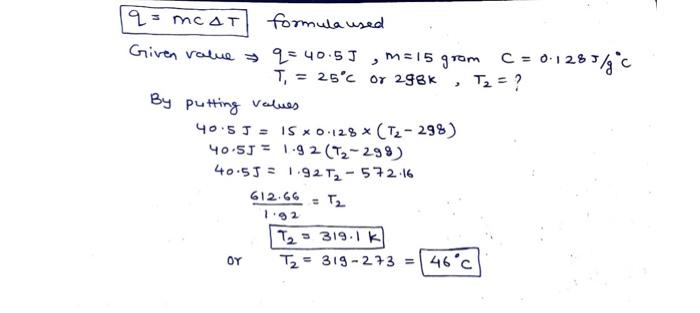 q = mcΔT formula used
Given value ⇒ q = 40.5 J , m = 15 gram C = 0.128 J/g°C
T₁ = 25°C or 298k , T₂ = ?
By putting values
40.5 J = 15 × 0.128 × (T₂ - 298)
40.5J = 1.92 (T₂ - 298)
40.5J = 1.92T₂ - 572.16
612.66 / 1.92 = T₂
T₂ = 319.1 K
or T₂ = 319 - 273 = 46°C